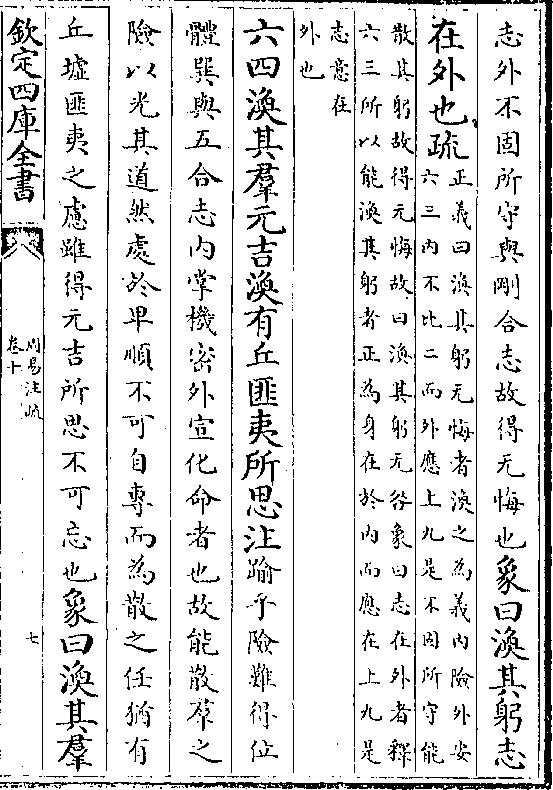 志外不固所守與剛合志故得无悔也象曰渙其躬志
在外也疏
正義曰渙其躬无悔者渙之為義內險外安
六三內不比二而外應上九是不固所守能
散其躬故得无悔故曰渙其躬无咎象曰志在外者釋
六三所以能渙其躬者正為身在於內而應在上九是
志意在
外也
六四渙其羣元吉渙有丘匪夷所思注踰乎險難得位
體巽與五合志內掌機密外宣化命者也故能散羣之
險以光其道然處於卑順不可自專而為散之任猶有
丘墟匪夷之慮雖得元吉所思不可忘也象曰渙其羣
欽定四庫全書
周易注疏
卷十
七